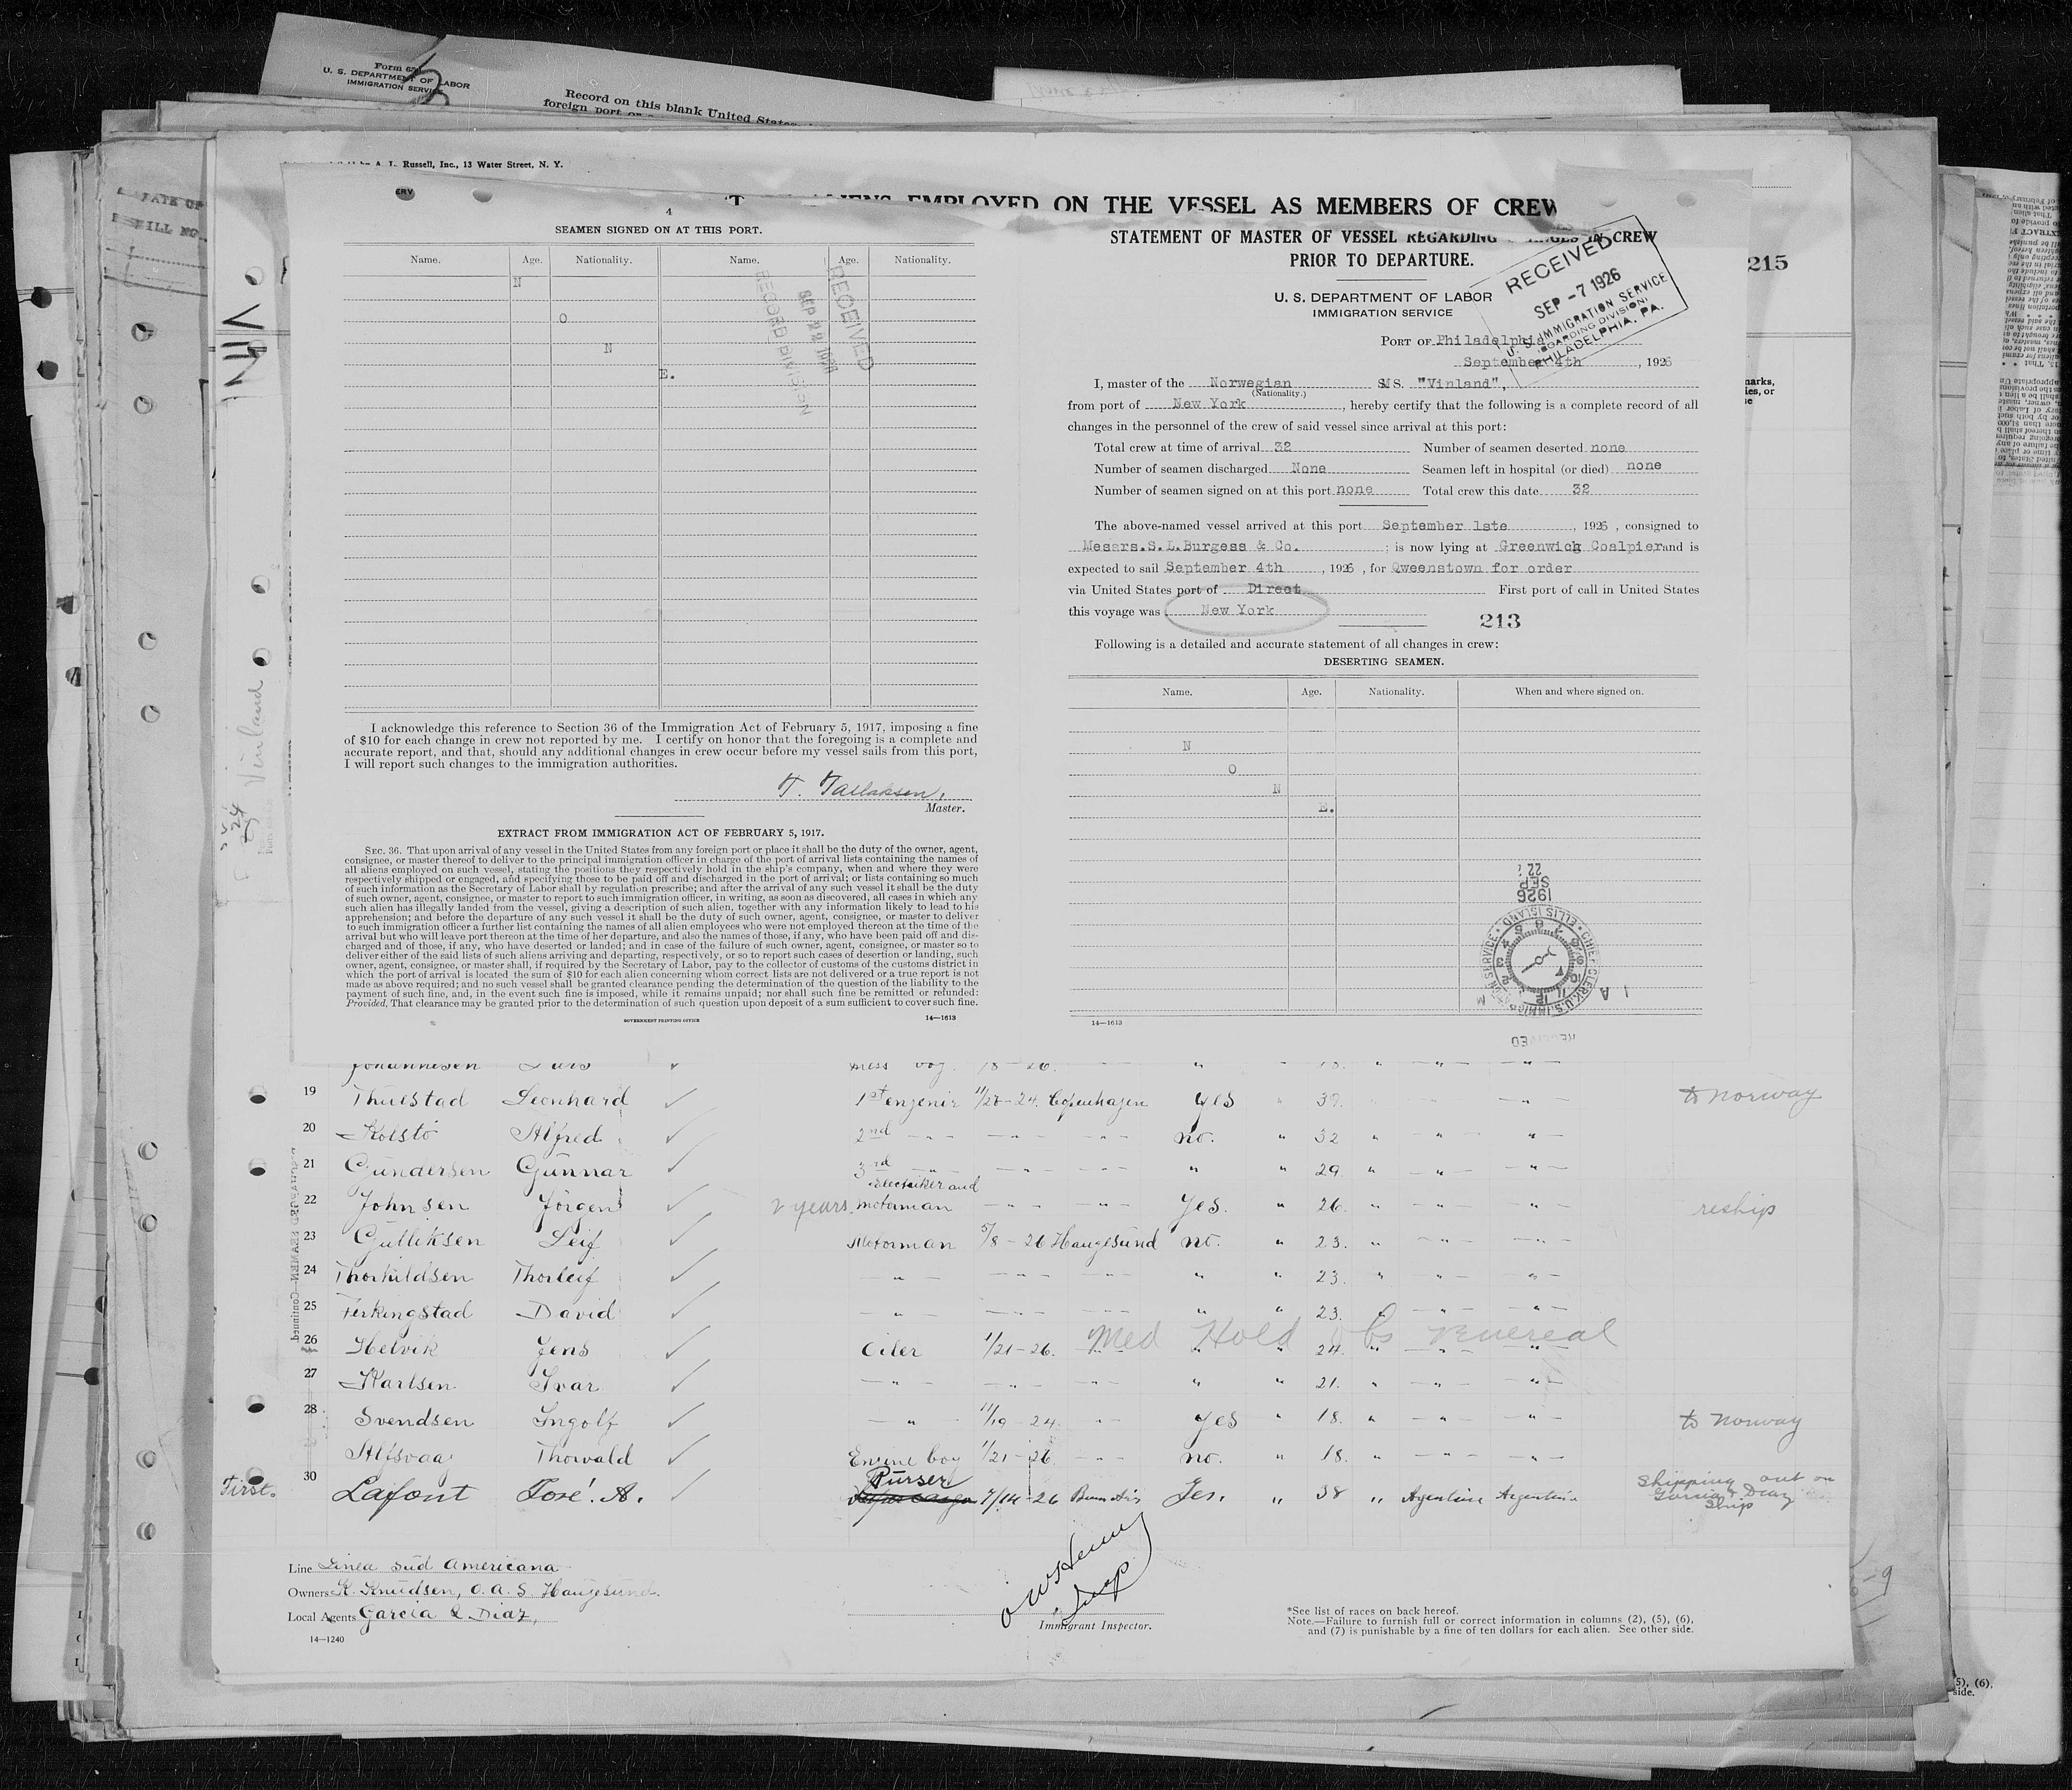 Form 680
U. S. DEPARTMENT OF LABOR
IMMIGRATION SERVICE
Record on this blank United States
foreign port or
A. L. Russell, Inc., 13 Water Street, N. Y.
ALIENS EMPLOYED ON THE VESSEL AS MEMBERS OF CREW
4
SEAMEN SIGNED ON AT THIS PORT.
Name. Age. Nationality. Name. Age. Nationality.
N
O
N
E.
RECEIVED
SEP 22 1926
RECORD DIVISION
I acknowledge this reference to Section 36 of the Immigration Act of February 5, 1917, imposing a fine
of $10 for each change in crew not reported by me. I certify on honor that the foregoing is a complete and
accurate report, and that, should any additional changes in crew occur before my vessel sails from this port,
I will report such changes to the immigration authorities.
T. Tallaksen,
Master.
EXTRACT FROM IMMIGRATION ACT OF FEBRUARY 5, 1917.
SEC. 36. That upon arrival of any vessel in the United States from any foreign port or place it shall be the duty of the owner, agent,
consignee, or master thereof to deliver to the principal immigration officer in charge of the port of arrival lists containing the names of
all aliens employed on such vessel, stating the positions they respectively hold in the ship's company, when and where they were
respectively shipped or engaged, and specifying those to be paid off and discharged in the port of arrival; or lists containing so much
of such information as the Secretary of Labor shall by regulation prescribe; and after the arrival of any such vessel it shall be the duty
of such owner, agent, consignee, or master to report to such immigration officer, in writing, as soon as discovered, all cases in which any
such alien has illegally landed from the vessel, giving a description of such alien, together with any information likely to lead to his
apprehension; and before the departure of any such vessel it shall be the duty of such owner, agent, consignee, or master to deliver
to such immigration officer a further list containing the names of all alien employees who were not employed thereon at the time of the
arrival but who will leave port thereon at the time of her departure, and also the names of those, if any, who have been paid off and dis-
charged and of those, if any, who have deserted or landed; and in case of the failure of such owner, agent, consignee, or master so to
deliver either of the said lists of such aliens arriving and departing, respectively, or so to report such cases of desertion or landing, such
owner, agent, consignee, or master shall, if required by the Secretary of Labor, pay to the collector of customs of the customs district in
which the port of arrival is located the sum of $10 for each alien concerning whom correct lists are not delivered or a true report is not
made as above required; and no such vessel shall be granted clearance pending the determination of the question of the liability to the
payment of such fine, and, in the event such fine is imposed, while it remains unpaid; nor shall such fine be remitted or refunded:
Provided, That clearance may be granted prior to the determination of such question upon deposit of a sum sufficient to cover such fine.
GOVERNMENT PRINTING OFFICE 14—1613
STATEMENT OF MASTER OF VESSEL REGARDING CHANGES IN CREW
PRIOR TO DEPARTURE.
U. S. DEPARTMENT OF LABOR
IMMIGRATION SERVICE
RECEIVED
SEP -7 1926
U. S. IMMIGRATION SERVICE
(BOARDING DIVISION)
PHILADELPHIA, PA.
215
PORT OF Philadelphia
September 4th, 1926
I, master of the Norwegian MS. "Vinland",
(Nationality.)
from port of New York, hereby certify that the following is a complete record of all
changes in the personnel of the crew of said vessel since arrival at this port:
Total crew at time of arrival 32 Number of seamen deserted none
Number of seamen discharged None Seamen left in hospital (or died) none
Number of seamen signed on at this port none Total crew this date 32
The above-named vessel arrived at this port September 1ste, 1926, consigned to
Messrs. S. L. Burgess & Co.; is now lying at Greenwich Coalpier and is
expected to sail September 4th, 1926, for Qweenstown for order
via United States port of Direct First port of call in United States
this voyage was New York
213
Following is a detailed and accurate statement of all changes in crew:
DESERTING SEAMEN.
Name. Age. Nationality. When and where signed on.
N
O
N
E.
SEP 22
1926
ELLIS ISLAND
RECEIVED
14—1613
Vinland
Johannesen Lars mess boy. 18.
19 Thuestad Leonhard 1st enginir 11/27-24. Copenhagen yes " 37. to Norway
20 Kolstö Alfred 2nd -"- -"- -"- no. " 32 " -"- -"-
21 Gundersen Gunnar 3rd -"- -"- -"- " " 29 " -"- -"-
22 Johnsen Jörgen 2 years. Electriker and motorman -"- -"- Yes. " 26. " -"- -"- reship
23 Gulliksen Leif Motorman 5/8-26 Haugesund no. " 23. " -"- -"-
24 Thorkildsen Thorleif -"- -"- -"- " " 23. " -"- -"-
25 Ferkingstad David -"- -"- -"- " " 23. " -"- -"-
26 Helvik Jens Oiler 1/21-26. Med Hold Venereal " 24. " -"- -"-
27 Karlsen Ivar -"- -"- -"- " " 21. " -"- -"-
28 Svendsen Ingolf -"- 11/19-24 -"- yes " 18. " -"- -"- to Norway
Alfsvaag Thorvald Engine boy 1/21-26. -"- no. " 18. " -"- -"-
30 First. Lafont José. A. Purser 7/14-26 Buen Airs Yes. " 38 " Argentine Argentine Shipping out on Garcia & Diaz Ship
Line Linea Sud Americana
Owners K. Knudsen, O. A. S. Haugesund.
Local Agents Garcia & Diaz,
14—1240
Immigrant Inspector.
*See list of races on back hereof.
Note.—Failure to furnish full or correct information in columns (2), (5), (6),
and (7) is punishable by a fine of ten dollars for each alien. See other side.
5), (6),
side.